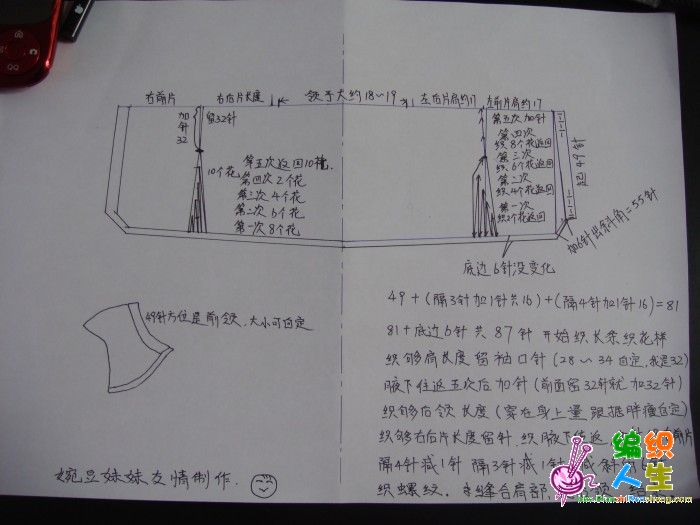 右前片 右后片长度 领子大约18~19 左后片肩约17 左前片肩约17
加针32
留32针
10个花
第五次返回10花.
第四次2个花
第三次4个花
第二次6个花
第一次8个花
第五次加针
第四次
织8个花返回
第三次
织6个花返回
第二次
织4个花返回
第一次
织2个花返回
起49针
加6针出斜角=55针
底边6针没变化
49针方位是前领,大小可自定
49+(隔3针加1针共16)+(隔4针加1针16)=81
81+底边6针共87针 开始织长条织花样
织够肩长度留袖口针(28~34自定,我是32)
腋下往返五次后加针(前面留32针就加32针)
织够后领长度(穿在身上量跟据胖瘦自定)
织够右后片长度留针,织腋下往返 右前片
隔4针减1针 隔3针减1针 减斜角
织螺纹. 缝合肩部,
豌豆妹妹友情制作.
编织人生